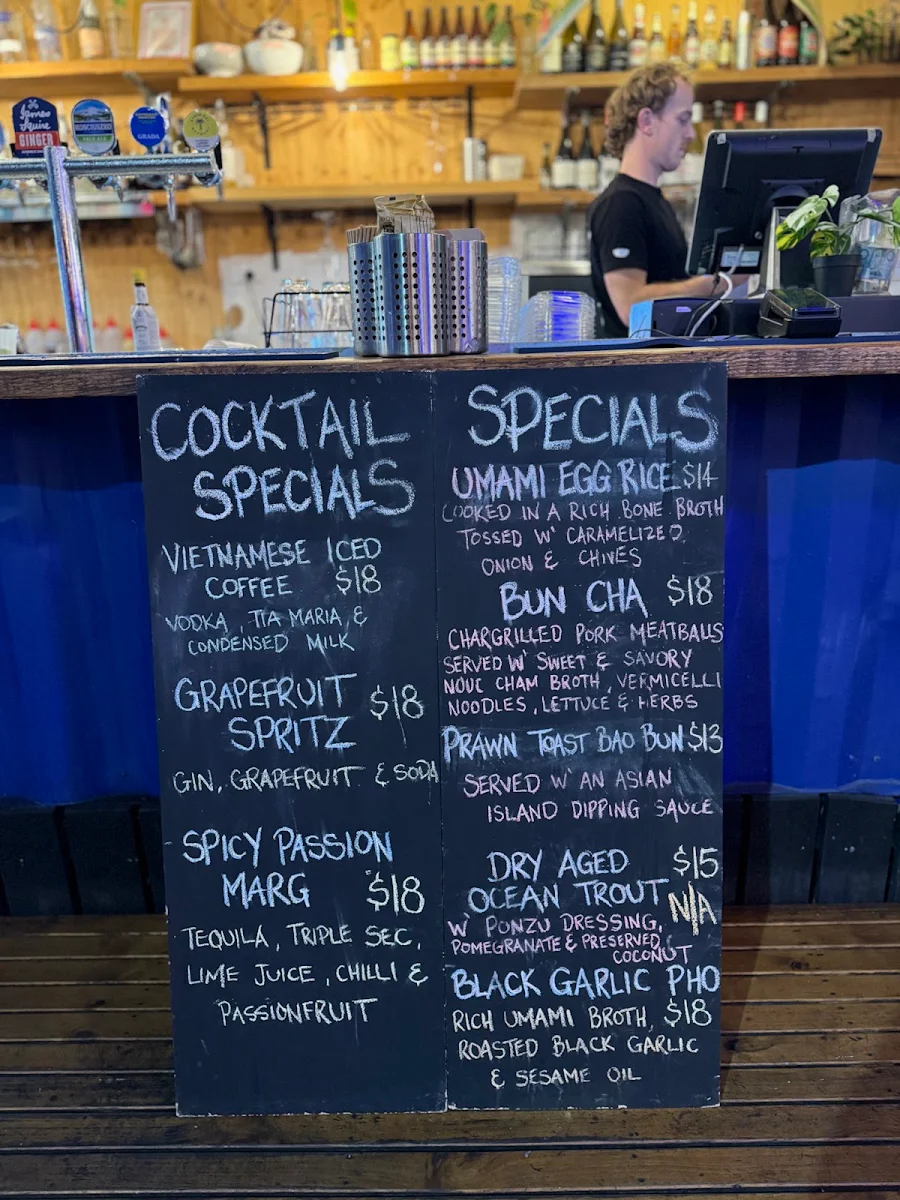 James
Squire
GINGER
KOSCIUSZKO
PALE ALE
GRADA
COCKTAIL
SPECIALS
VIETNAMESE ICED
COFFEE $18
VODKA, TIA MARIA, &
CONDENSED MILK
GRAPEFRUIT
SPRITZ $18
GIN, GRAPEFRUIT & SODA
SPICY PASSION
MARG $18
TEQUILA, TRIPLE SEC,
LIME JUICE, CHILLI &
PASSIONFRUIT
SPECIALS
UMAMI EGG RICE $14
COOKED IN A RICH BONE BROTH
TOSSED W' CARAMELIZED
ONION & CHIVES
BUN CHA $18
CHARGRILLED PORK MEATBALLS
SERVED W' SWEET & SAVORY
NOUC CHAM BROTH, VERMICELLI
NOODLES, LETTUCE & HERBS
PRAWN TOAST BAO BUN $13
SERVED W' AN ASIAN
ISLAND DIPPING SAUCE
DRY AGED $15
OCEAN TROUT N/A
W' PONZU DRESSING,
POMEGRANATE & PRESERVED
COCONUT
BLACK GARLIC PHO
RICH UMAMI BROTH, $18
ROASTED BLACK GARLIC
& SESAME OIL